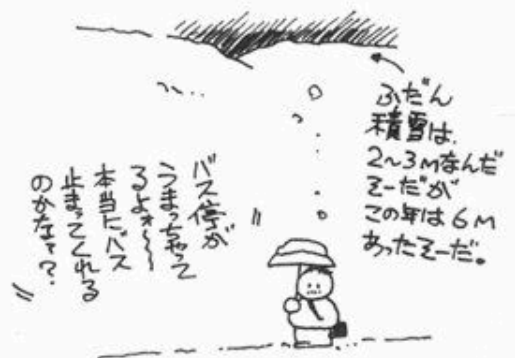 ふだん
積雪は、
2～3Mなんだ
そーだが
この年は6M
あったそーだ。
バス停が
うまっちゃって
るよォ～～
本当にバス
止まってくれる
のかなァ?